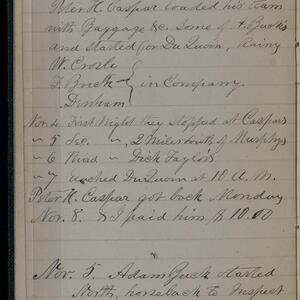 Peter H. Caspar loaded his team
with Baggage &c. Some of A. Buck's
and started for DuQuoin, Rainy
W. Crosle
F. Buck } in Company.
Denham
Nov. 4 First Night they Stopped at Caspars
" 5 Sec. " 2 Miles South of Murphys
" 6 Third " Dick Taylor's
" 7 reached DuQuoin at 10 A.M.
Peter H. Caspar got back Monday
Nov. 8. & I paid him $10.00
Nov. 5. Adam Buck started
North, horseback to Inspect